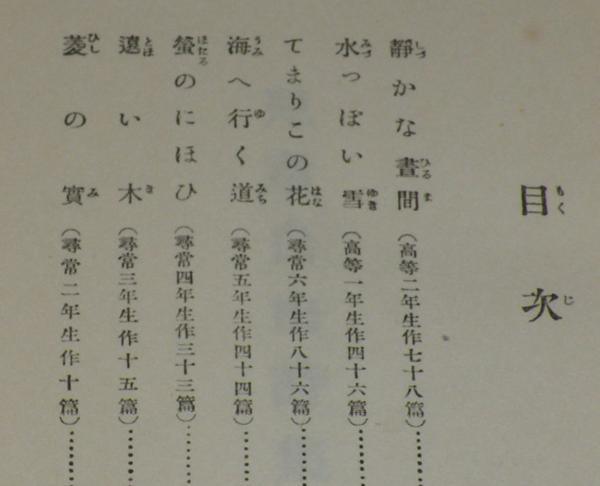 目次
靜かな晝間(高等二年生作七十八篇)………
水っぽい雪(高等一年生作四十六篇)………
てまりこの花(尋常六年生作八十六篇)………
海へ行く道(尋常五年生作四十四篇)………
螢のにほひ(尋常四年生作三十三篇)………
遠い木(尋常三年生作十五篇)………
菱の實(尋常二年生作十篇)………